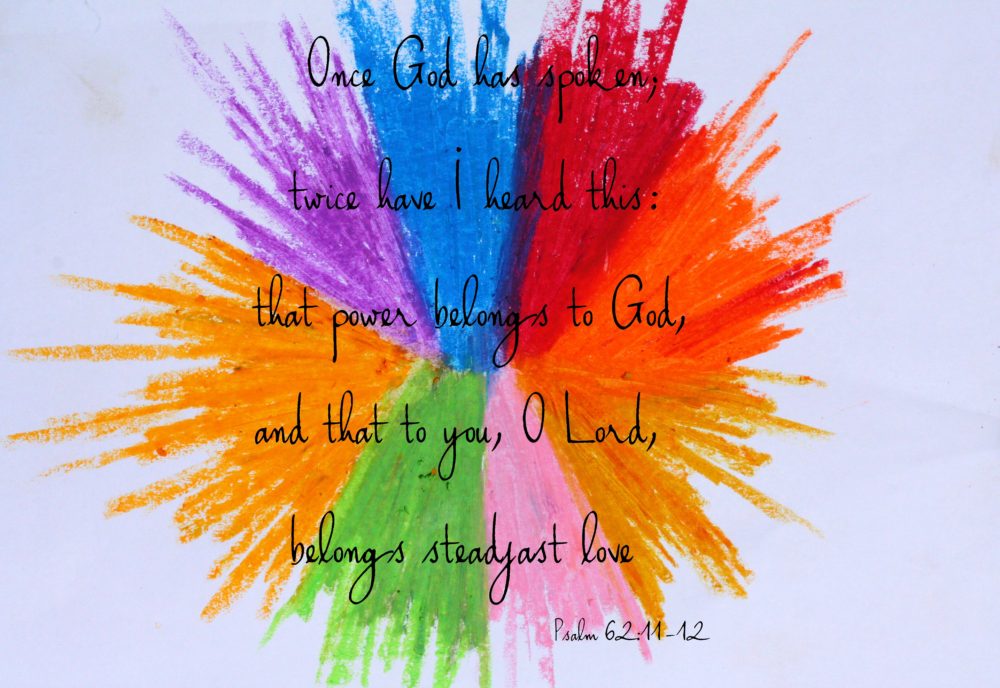 Once God has spoken;
twice have I heard this:
that power belongs to God,
and that to you, O Lord,
belongs steadfast love
Psalm 62:11-12